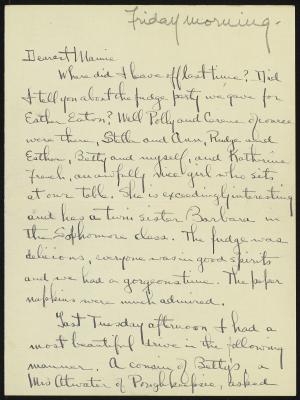 Friday morning.
Dearest Mamie
Where did I leave off last time? Did
I tell you about the fudge party we gave for
Esther Eaton? Well Polly and of course
were there, and Ann, and
Esther, Betty and myself, and Katherine
French, an awfully nice girl who sits
at our table. She is exceedingly interesting
and has a twin sister Barbara in
the Sophomore class. The fudge was
delicious, everyone was in good spirits
and we had a gorgeous time. The paper
napkins were much admired.
Last Tuesday afternoon I had a
most beautiful drive in the following
manner. A cousin of Betty's a
Mrs Atwater of Poughkeepsie, asked